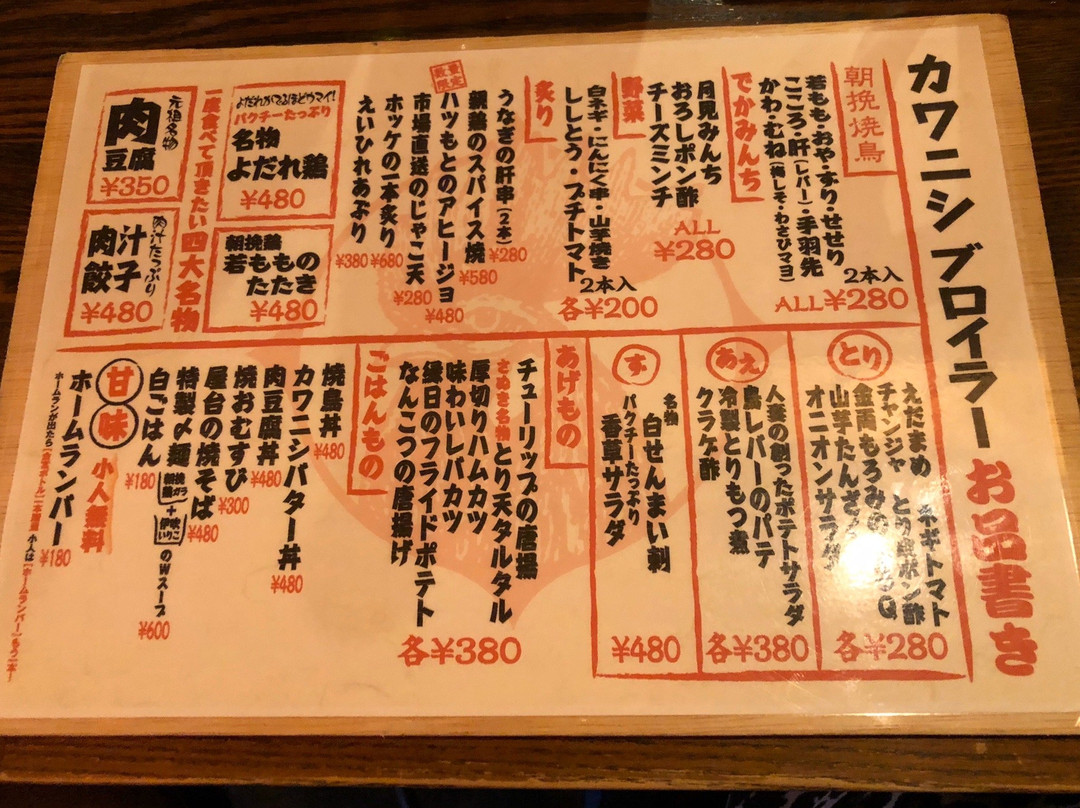 カワニシブロイラーお品書き
朝挽焼鳥
若もも・おやすり・せせり
こころ・肝(レバー)・手羽先
かわ・むね(梅しそ・わさびマヨ)
2本入
ALL¥280
でかみんち
月見みんち
おろしポン酢
チーズミンチ
ALL
¥280
野菜
白ネギ・にんにく串・山芋焼き
ししとう・プチトマト
2本入
各¥200
炙り
うなぎの肝串(2本)
¥280
親鶏のスパイス焼
¥580
数量限定
ハツもとのアヒージョ
¥480
市場直送のじゃこ天
¥280
ホッケの一本炙り
¥680
えいひれあぶり
¥380
一度食べて頂きたい四大名物
よだれがでるほどウマイ!
パクチーたっぷり
名物
よだれ鶏
¥480
朝挽鶏
若ももの
たたき
¥480
元祖名物
肉
豆腐
¥350
肉汁たっぷり
肉汁
餃子
¥480
とり
えだまめ
ネギトマト
チャンジャ
とり皮ポン酢
金両もろみの
Q
山芋たんざく
オニオンサラダ
各¥280
あえ
人妻の創ったポテトサラダ
鳥レバーのパテ
冷製とりもつ煮
クラゲ酢
各¥380
す
名物
白せんまい刺
パクチーたっぷり
香草サラダ
¥480
あげもの
チューリップの唐揚
さぬき名物 とり天タルタル
厚切りハムカツ
味わいレバカツ
縁日のフライドポテト
なんこつの唐揚げ
各¥380
ごはんもの
焼鳥丼
¥480
カワニシバター丼
¥480
肉豆腐丼
¥480
焼おむすび
¥300
屋台の焼そば
¥480
特製〆麺
朝挽鶏ガラ+伊吹いりこのWスープ
¥600
白ごはん
¥180
甘味
小人無料
ホームランバー
¥180